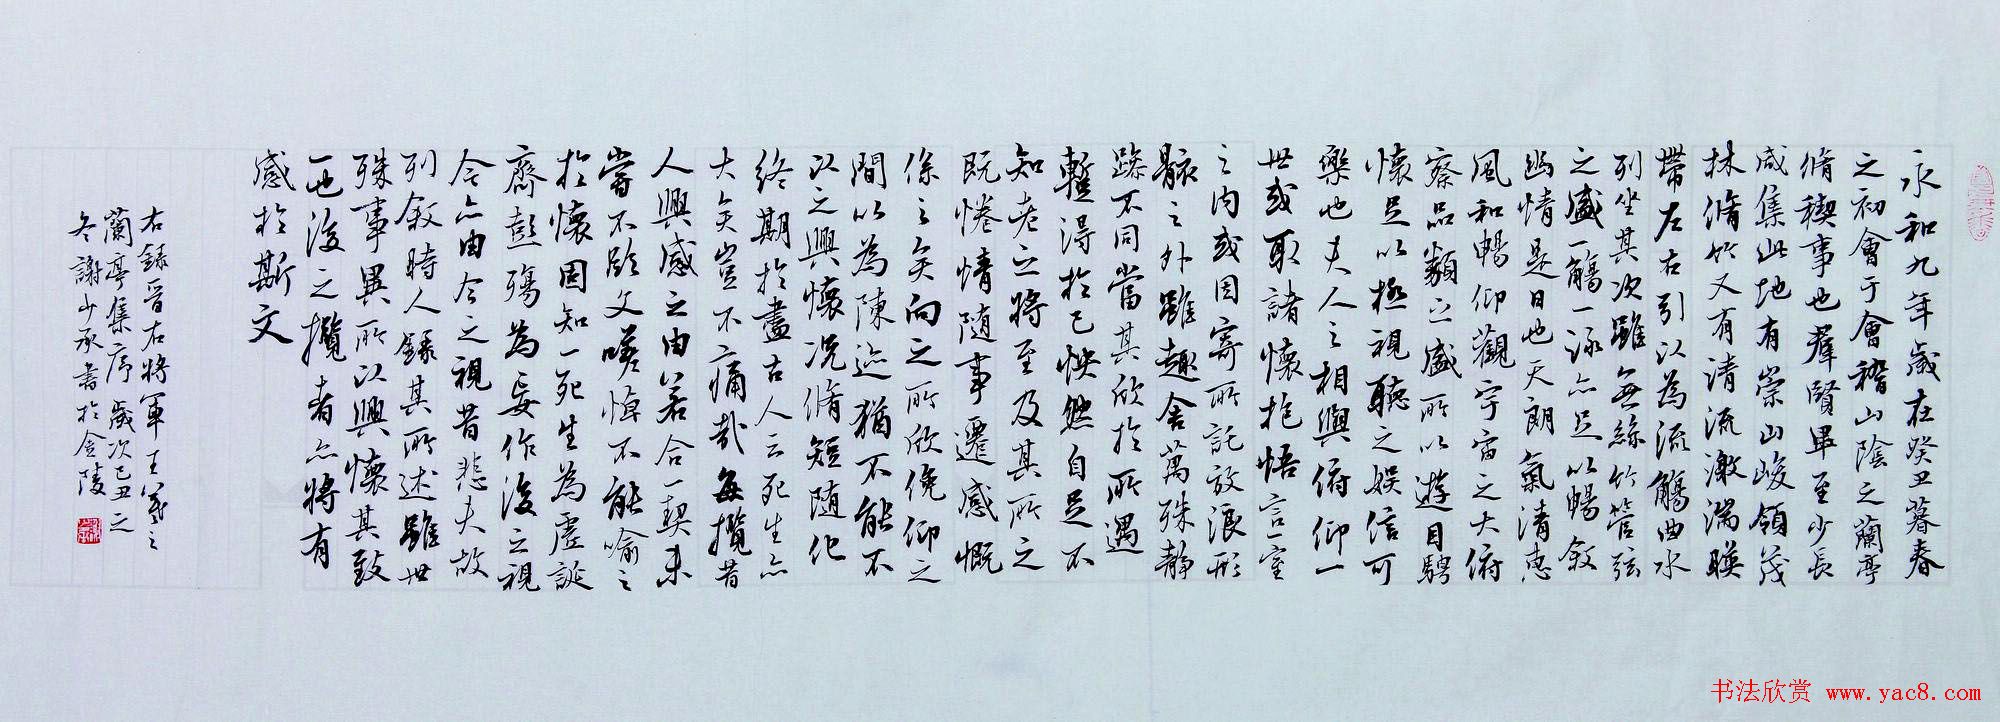 永和九年歲在癸丑暮春
之初會于會稽山陰之蘭亭
脩稧事也羣賢畢至少長
咸集此地有崇山峻領茂
林脩竹又有清流激湍暎
帶左右引以為流觴曲水
列坐其次雖無絲竹管弦
之盛一觴一詠亦足以暢敘
幽情是日也天朗氣清惠
風和暢仰觀宇宙之大俯
察品類之盛所以遊目騁
懷足以極視聽之娛信可
樂也夫人之相與俯仰一
世或取諸懷抱悟言一室
之內或因寄所託放浪形
骸之外雖趣舍萬殊靜
躁不同當其欣於所遇
暫得於己怏然自足不
知老之將至及其所之
既惓情隨事遷感慨
係之矣向之所欣俛仰之
間以為陳迹猶不能不
以之興懷況脩短隨化
終期於盡古人云死生亦
大矣豈不痛哉每攬昔
人興感之由若合一契未
嘗不臨文嗟悼不能喻之
於懷固知一死生為虛誕
齊彭殤為妄作後之視
今亦由今之視昔悲夫故
列敘時人錄其所述雖世
殊事異所以興懷其致
一也後之攬者亦將有
感於斯文
右錄晉右將軍王羲之
蘭亭集序歲次己丑之
冬謝少承書於金陵
书法欣赏 www.yac8.com